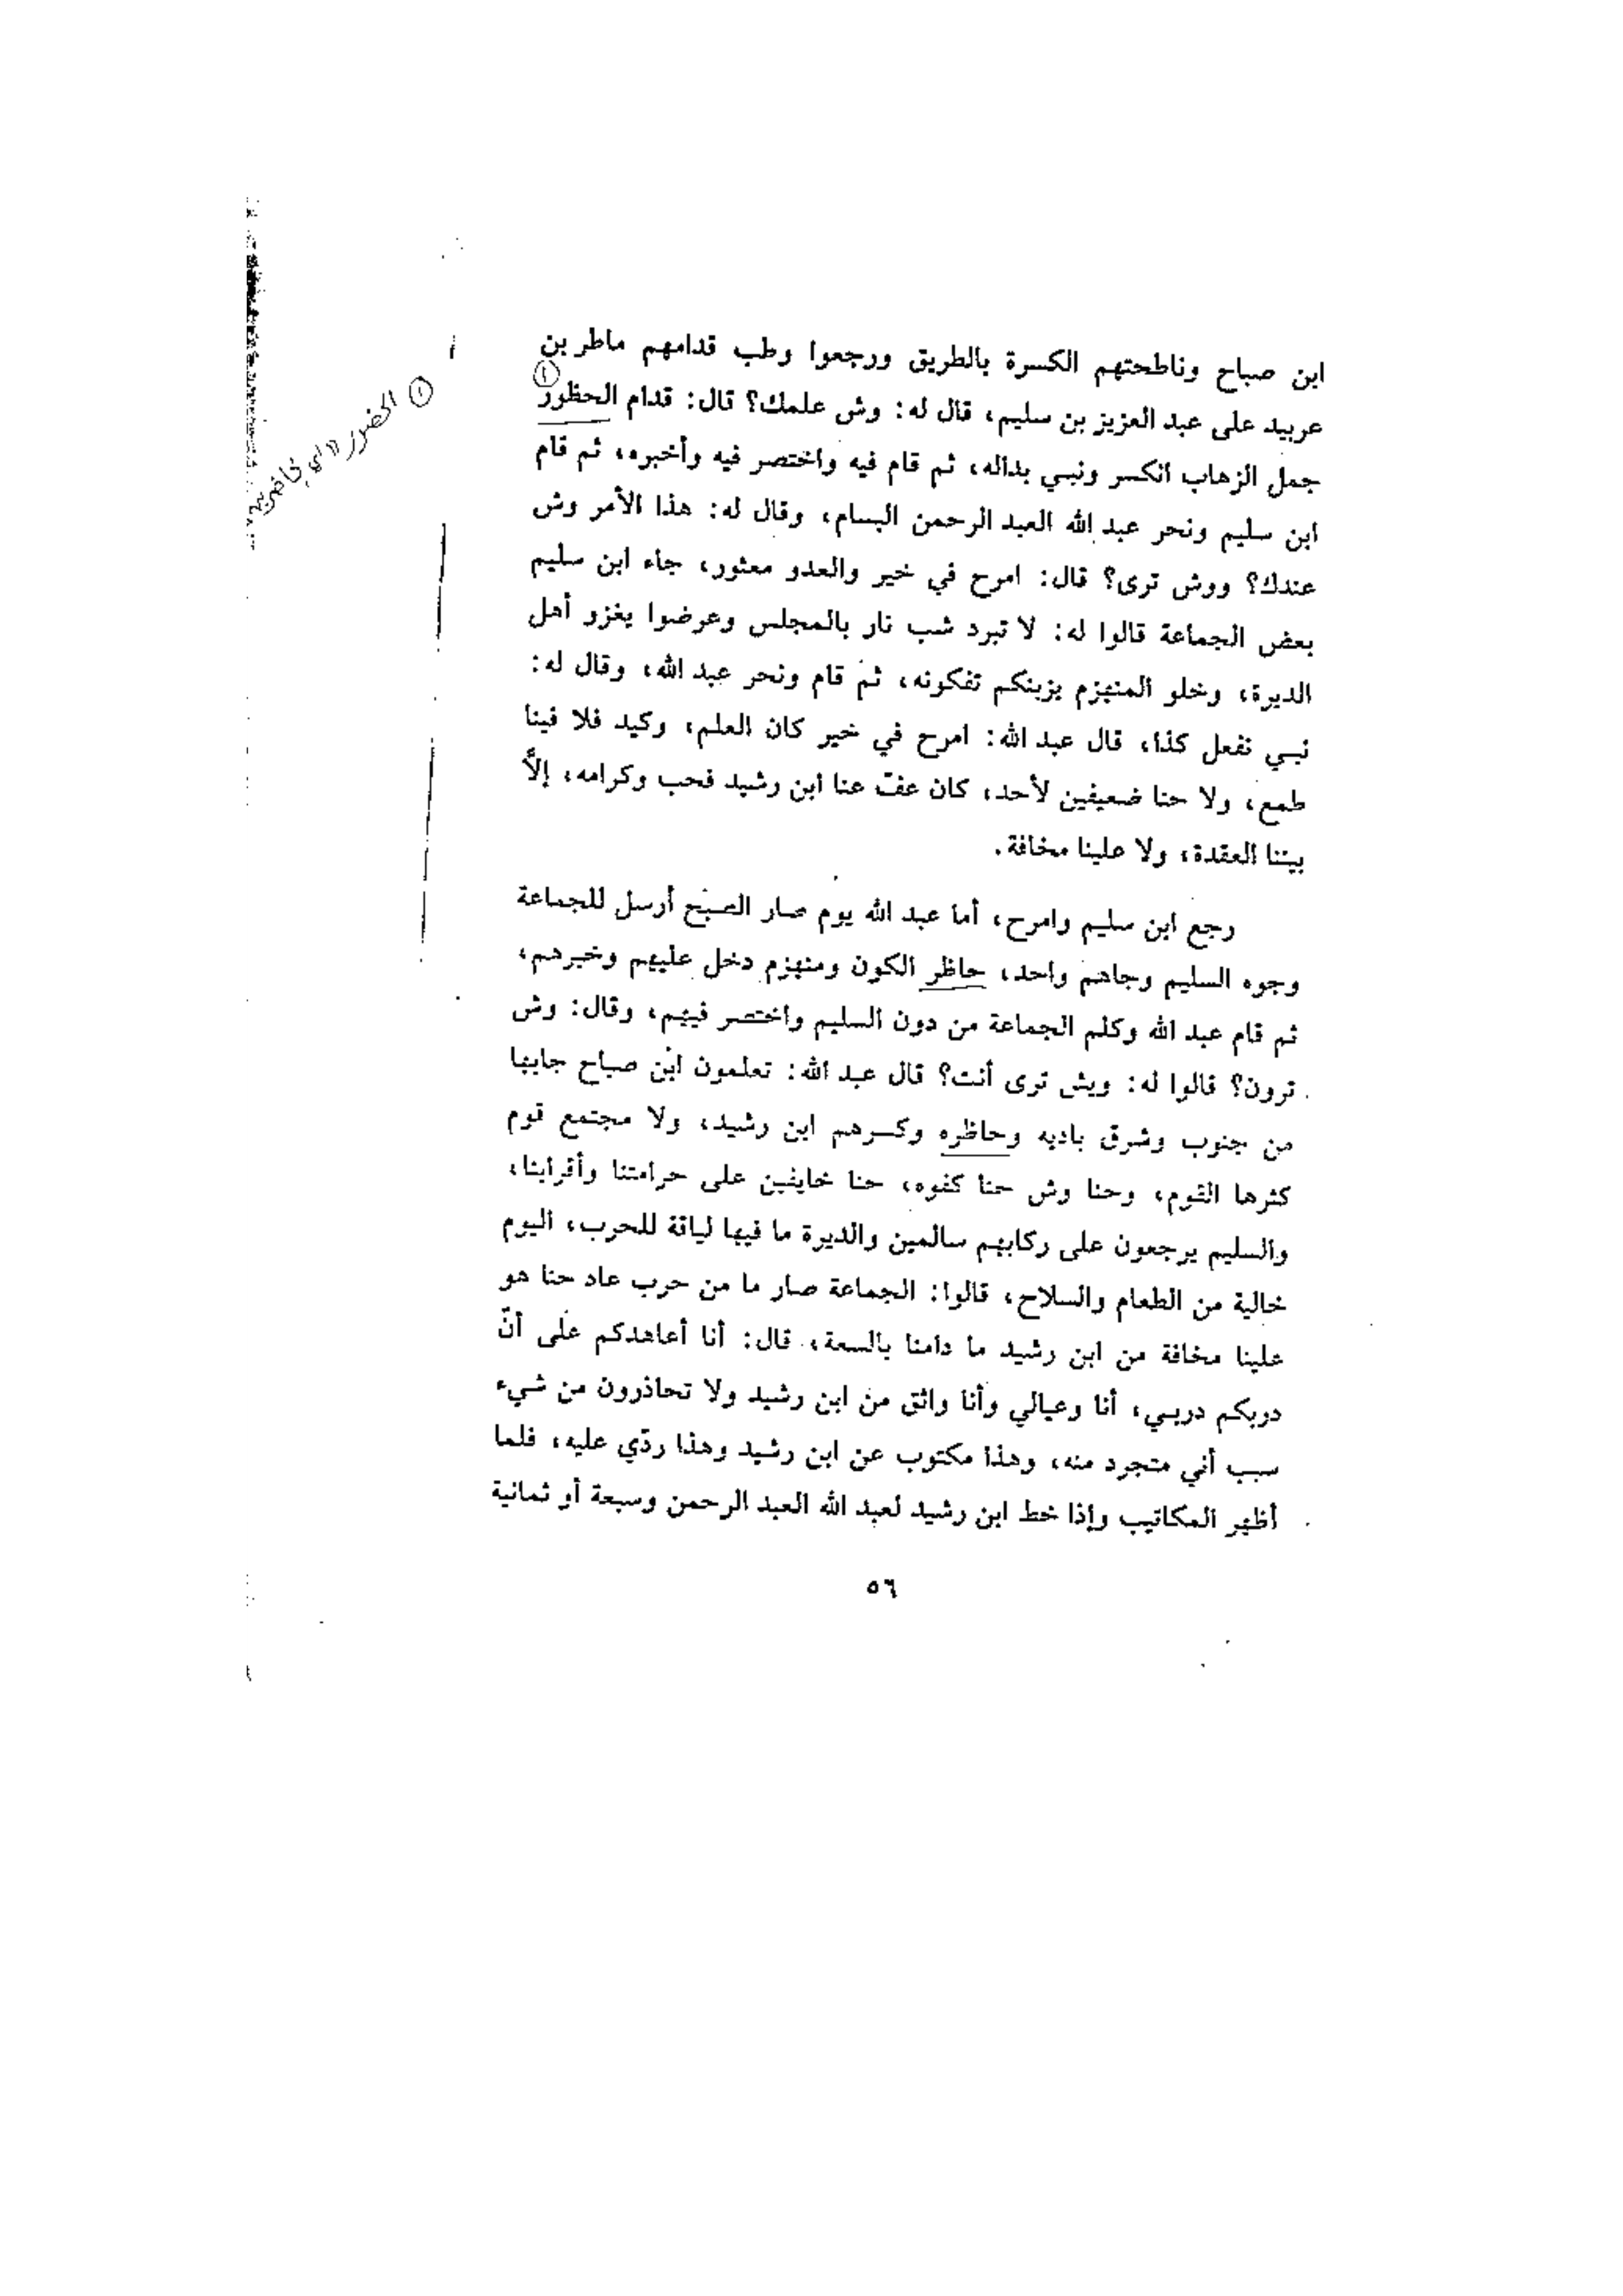 ابن صباح وناطحتهم الكسرة بالطريق ورجعوا وطب قدامهم ماطر بن
عربيد على عبد العزيز بن سليم، قال له: وش علمك؟ قال: قدام الحظور ①
جمل الزهاب انكسر ونبي بداله، ثم قام فيه واختصر فيه وأخبره، ثم قام
ابن سليم ونحر عبد الله العبد الرحمن البسام، وقال له: هذا الأمر وش
عندك؟ ووش ترى؟ قال: امرح في خير والعدو معثور، جاء ابن سليم
بعض الجماعة قالوا له: لا تبرد شب نار بالمجلس وعرضوا يغزو أهل
الديرة، وخلو المنهزم يزبنكم تفكونه، ثم قام ونحر عبد الله، وقال له:
نبي نفعل كذا، قال عبد الله: امرح في خير كان العلم، وكيد فلا فينا
طمع، ولا حنا ضعيفين لأحد، كان عفّ عنا ابن رشيد فحب وكرامه، إلاَّ
بيننا العقدة، ولا علينا مخافة.
رجع ابن سليم وامرح، أما عبد الله يوم صار الصبح أرسل للجماعة
وجوه السليم وجاهم واحد، حاظر الكون ومنهزم دخل عليهم وخبرهم،
ثم قام عبد الله وكلم الجماعة من دون السليم واختصر فيهم، وقال: وش
ترون؟ قالوا له: ويش ترى أنت؟ قال عبد الله: تعلمون ابن صباح جايبها
من جنوب وشرق باديه وحاظره وكسرهم ابن رشيد، ولا مجتمع قوم
كثرها القوم، وحنا وش حنا كفوه، حنا خايفين على حرامتنا وأقراينا،
والسليم يرجعون على ركابهم سالمين والديرة ما فيها لياقة للحرب، اليوم
خالية من الطعام والسلاح، قالوا: الجماعة صار ما من حرب عاد حنا هو
علينا مخافة من ابن رشيد ما دامنا بالسعة، قال: أنا أعاهدكم على أنّ
دربكم دربي، أنا وعيالي وأنا واثق من ابن رشيد ولا تحاذرون من شيء
سبب أني متجرد منه، وهذا مكتوب عن ابن رشيد وهذا ردّي عليه، فلما
أظهر المكاتيب وإذا خط ابن رشيد لعبد الله العبد الرحمن وسبعة أو ثمانية
٥٦
① الحضور (أي